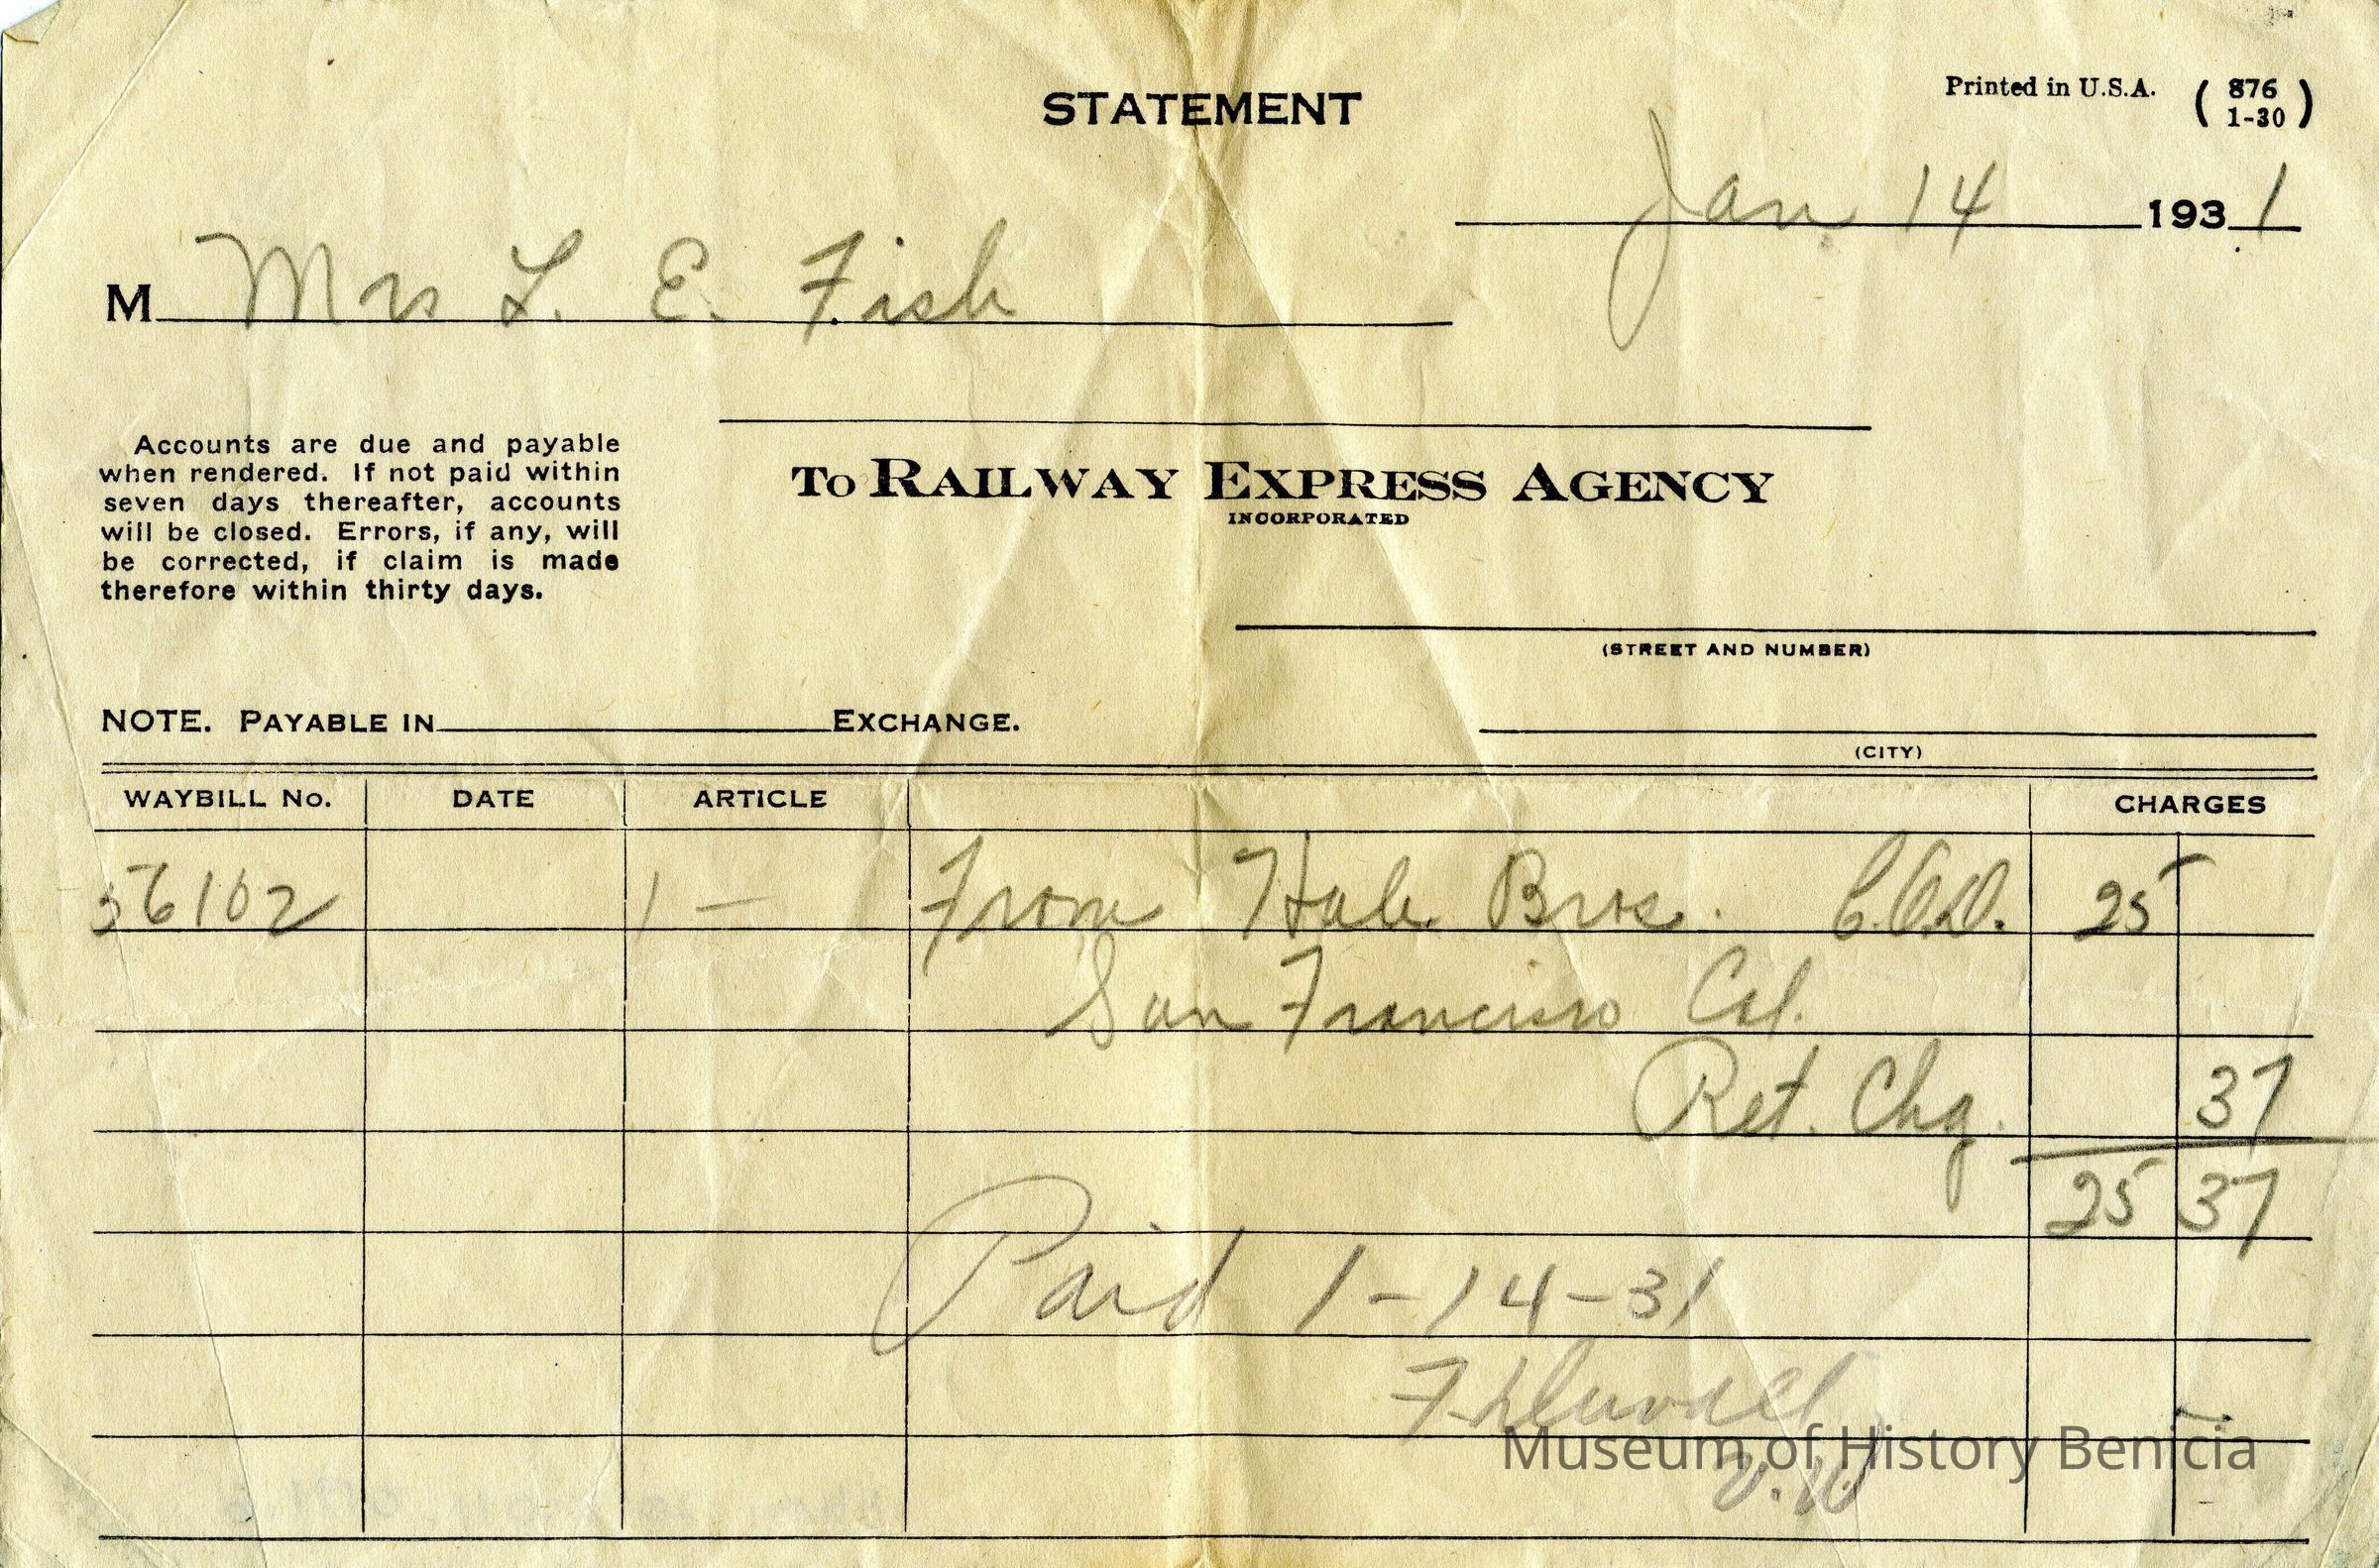 STATEMENT
Printed in U.S.A. ( 876
1-30 )
Jan 14 1931
M Mrs L. E. Fish
Accounts are due and payable
when rendered. If not paid within
seven days thereafter, accounts
will be closed. Errors, if any, will
be corrected, if claim is made
therefore within thirty days.
To RAILWAY EXPRESS AGENCY
INCORPORATED
(STREET AND NUMBER)
NOTE. PAYABLE IN EXCHANGE.
(CITY)
WAYBILL No. DATE ARTICLE CHARGES
56102 1 — From Hale Bros. C.O.D. 25 —
San Francisco Cal.
Ret. Chg. 37
25 37
Paid 1-14-31
Museum of History Benicia